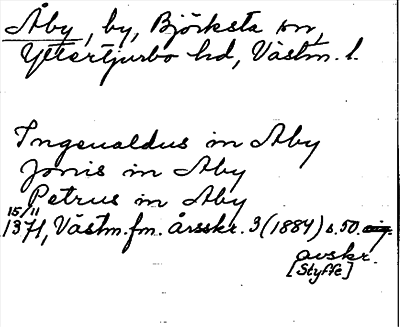 Åby, by, Björksta sn,
Yttertjurbo hd, Västm. l.
Ingeualdus in Aby
Jonis in Aby
Petrus in Aby
15/11
1371, Västm.fm. årsskr. 3 (1884) s. 50.
avskr.
[Styffe]